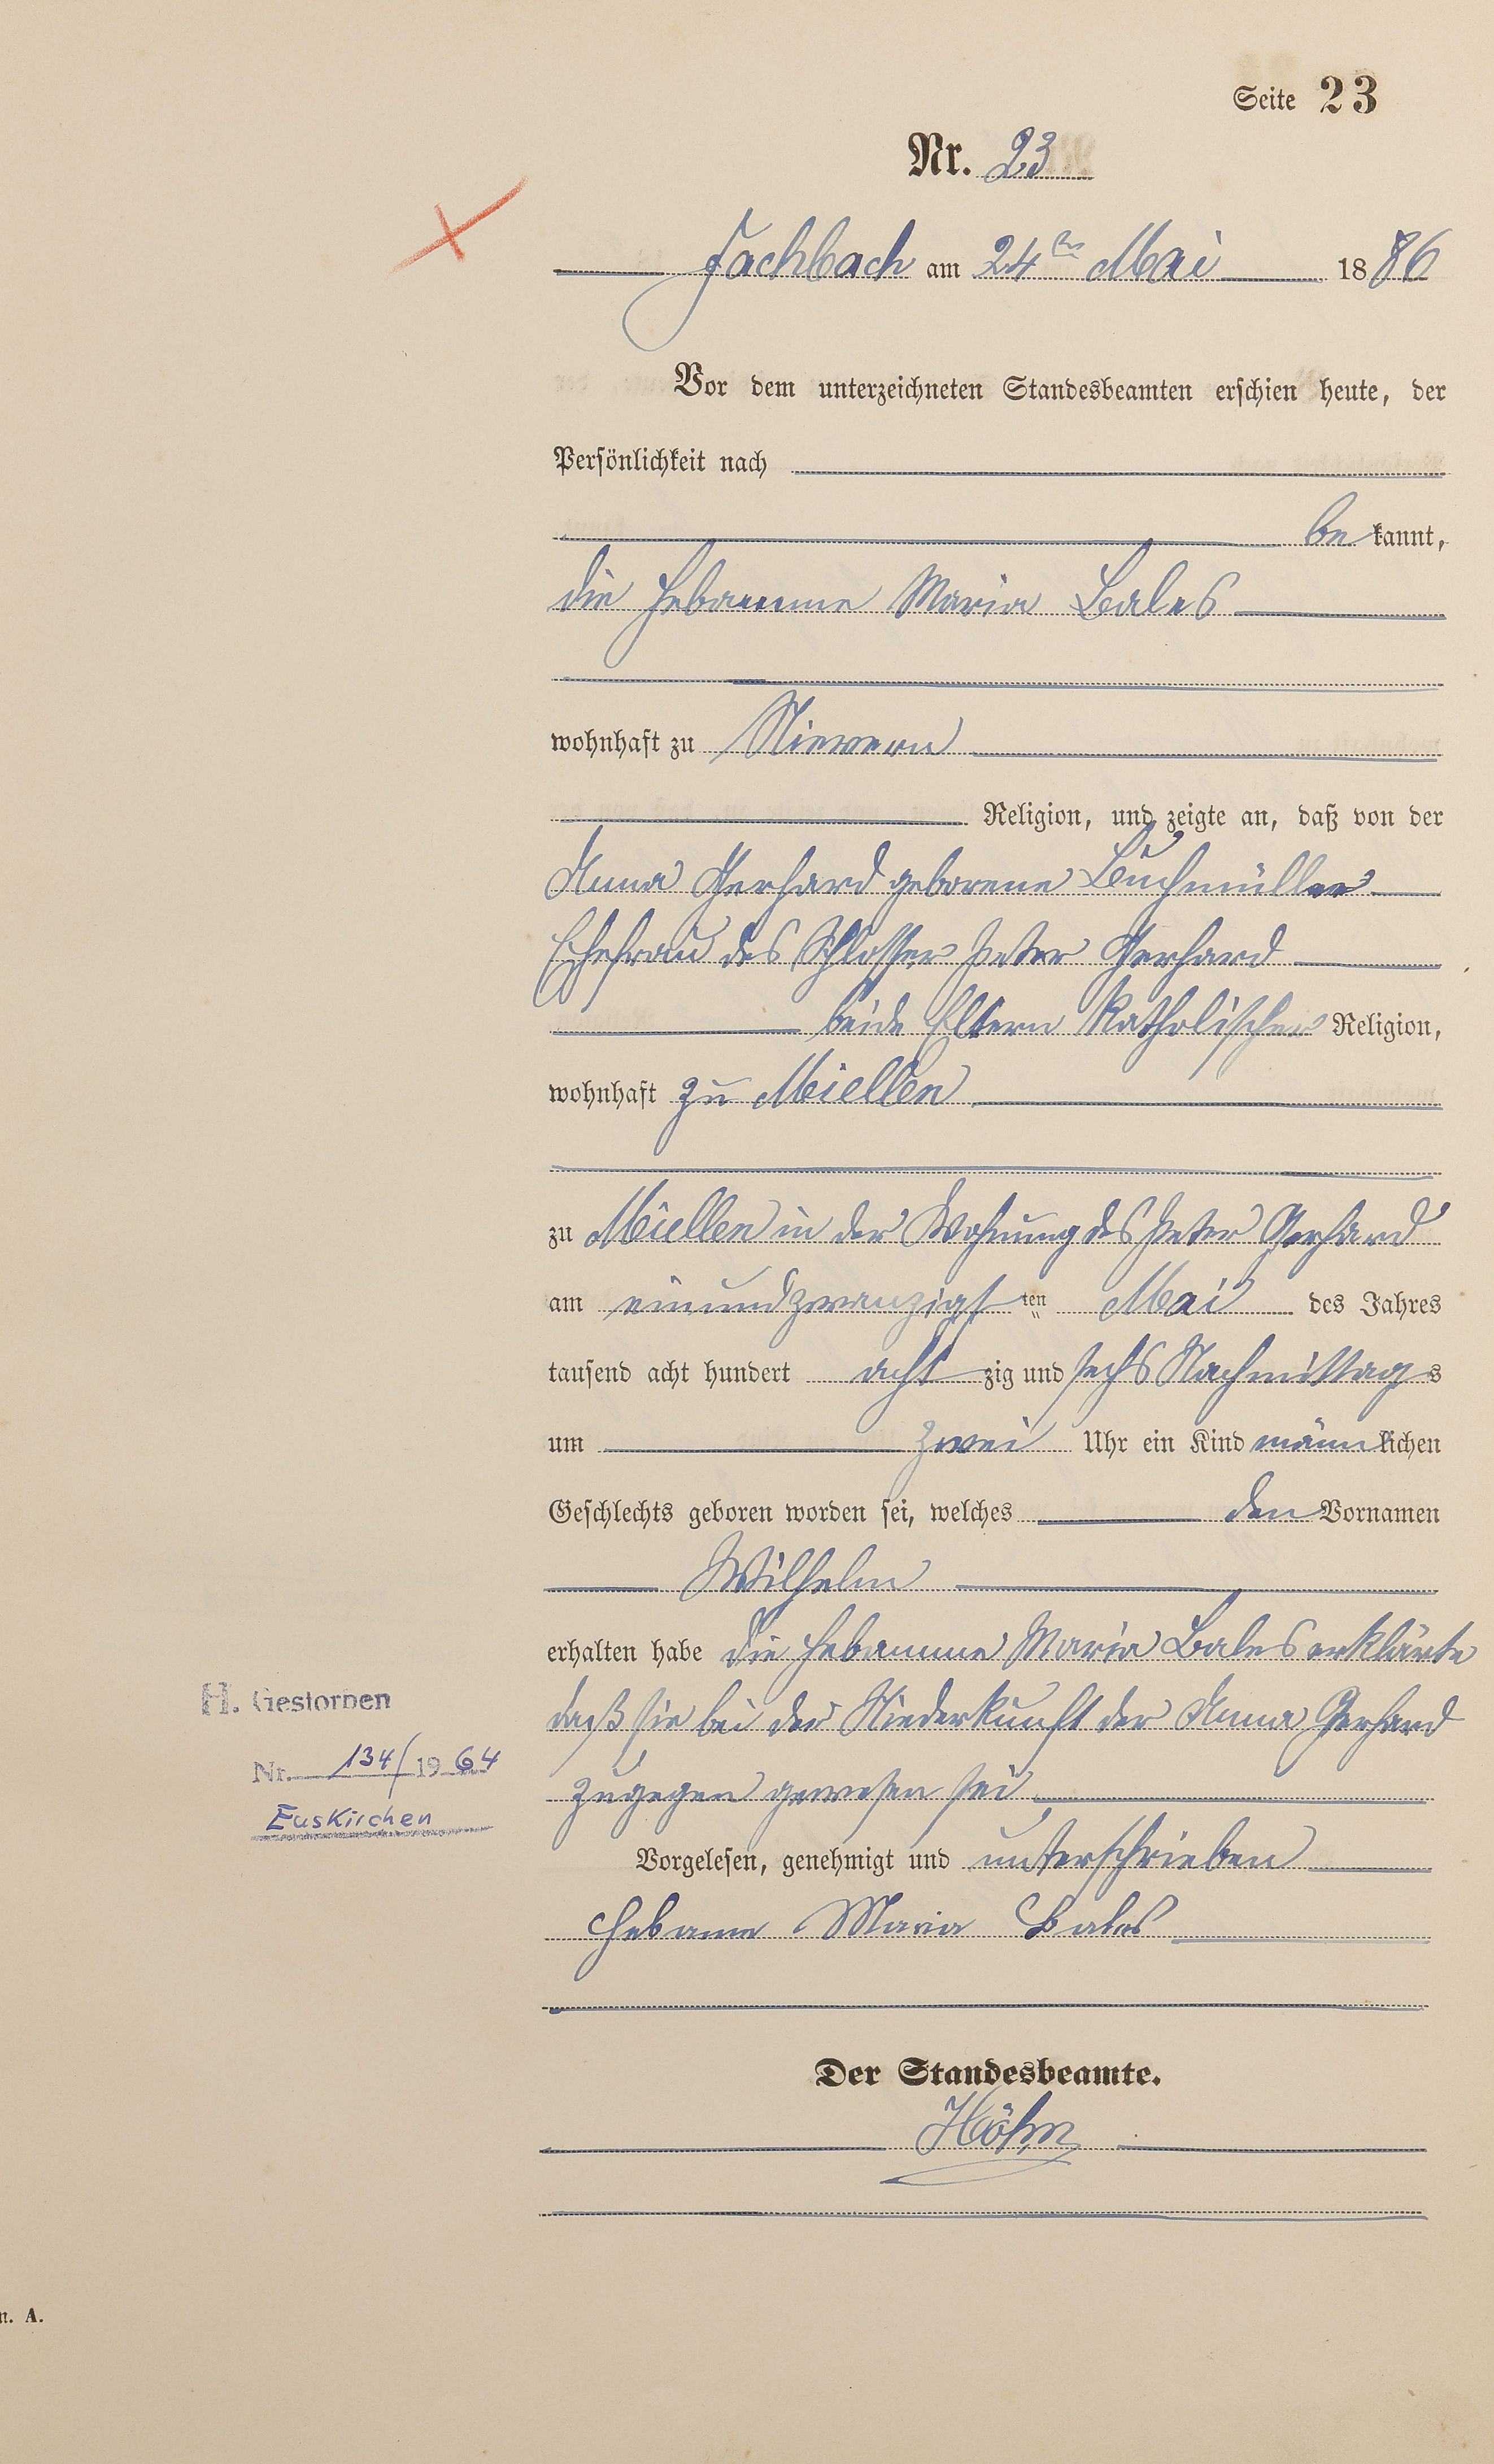 Seite 23
Nr. 23
Fachbach am 24ten Mai 1886
Vor dem unterzeichneten Standesbeamten erschien heute, der
Persönlichkeit nach
be kannt,
die Hebamme Maria Bales
wohnhaft zu Nievern
Religion, und zeigte an, daß von der
Anna Gerhard geborene Buchmüller
Ehefrau des Schlosser Peter Gerhard
beide Eltern Katholischer Religion,
wohnhaft zu Miellen
zu Miellen in der Wohnung des Peter Gerhard
am einundzwanzigsten Mai des Jahres
tausend acht hundert acht zig und sechs Nachmittags
um zwei Uhr ein Kind männlichen
Geschlechts geboren worden sei, welches den Vornamen
Wilhelm
erhalten habe die Hebamme Maria Bales erklärte
daß sie bei der Niederkunft der Anna Gerhard
zugegen gewesen sei
H. Gestorben
Nr. 134/1964
Euskirchen
Vorgelesen, genehmigt und unterschrieben
Hebame Maria Bales
Der Standesbeamte.
Höhn
n. A.